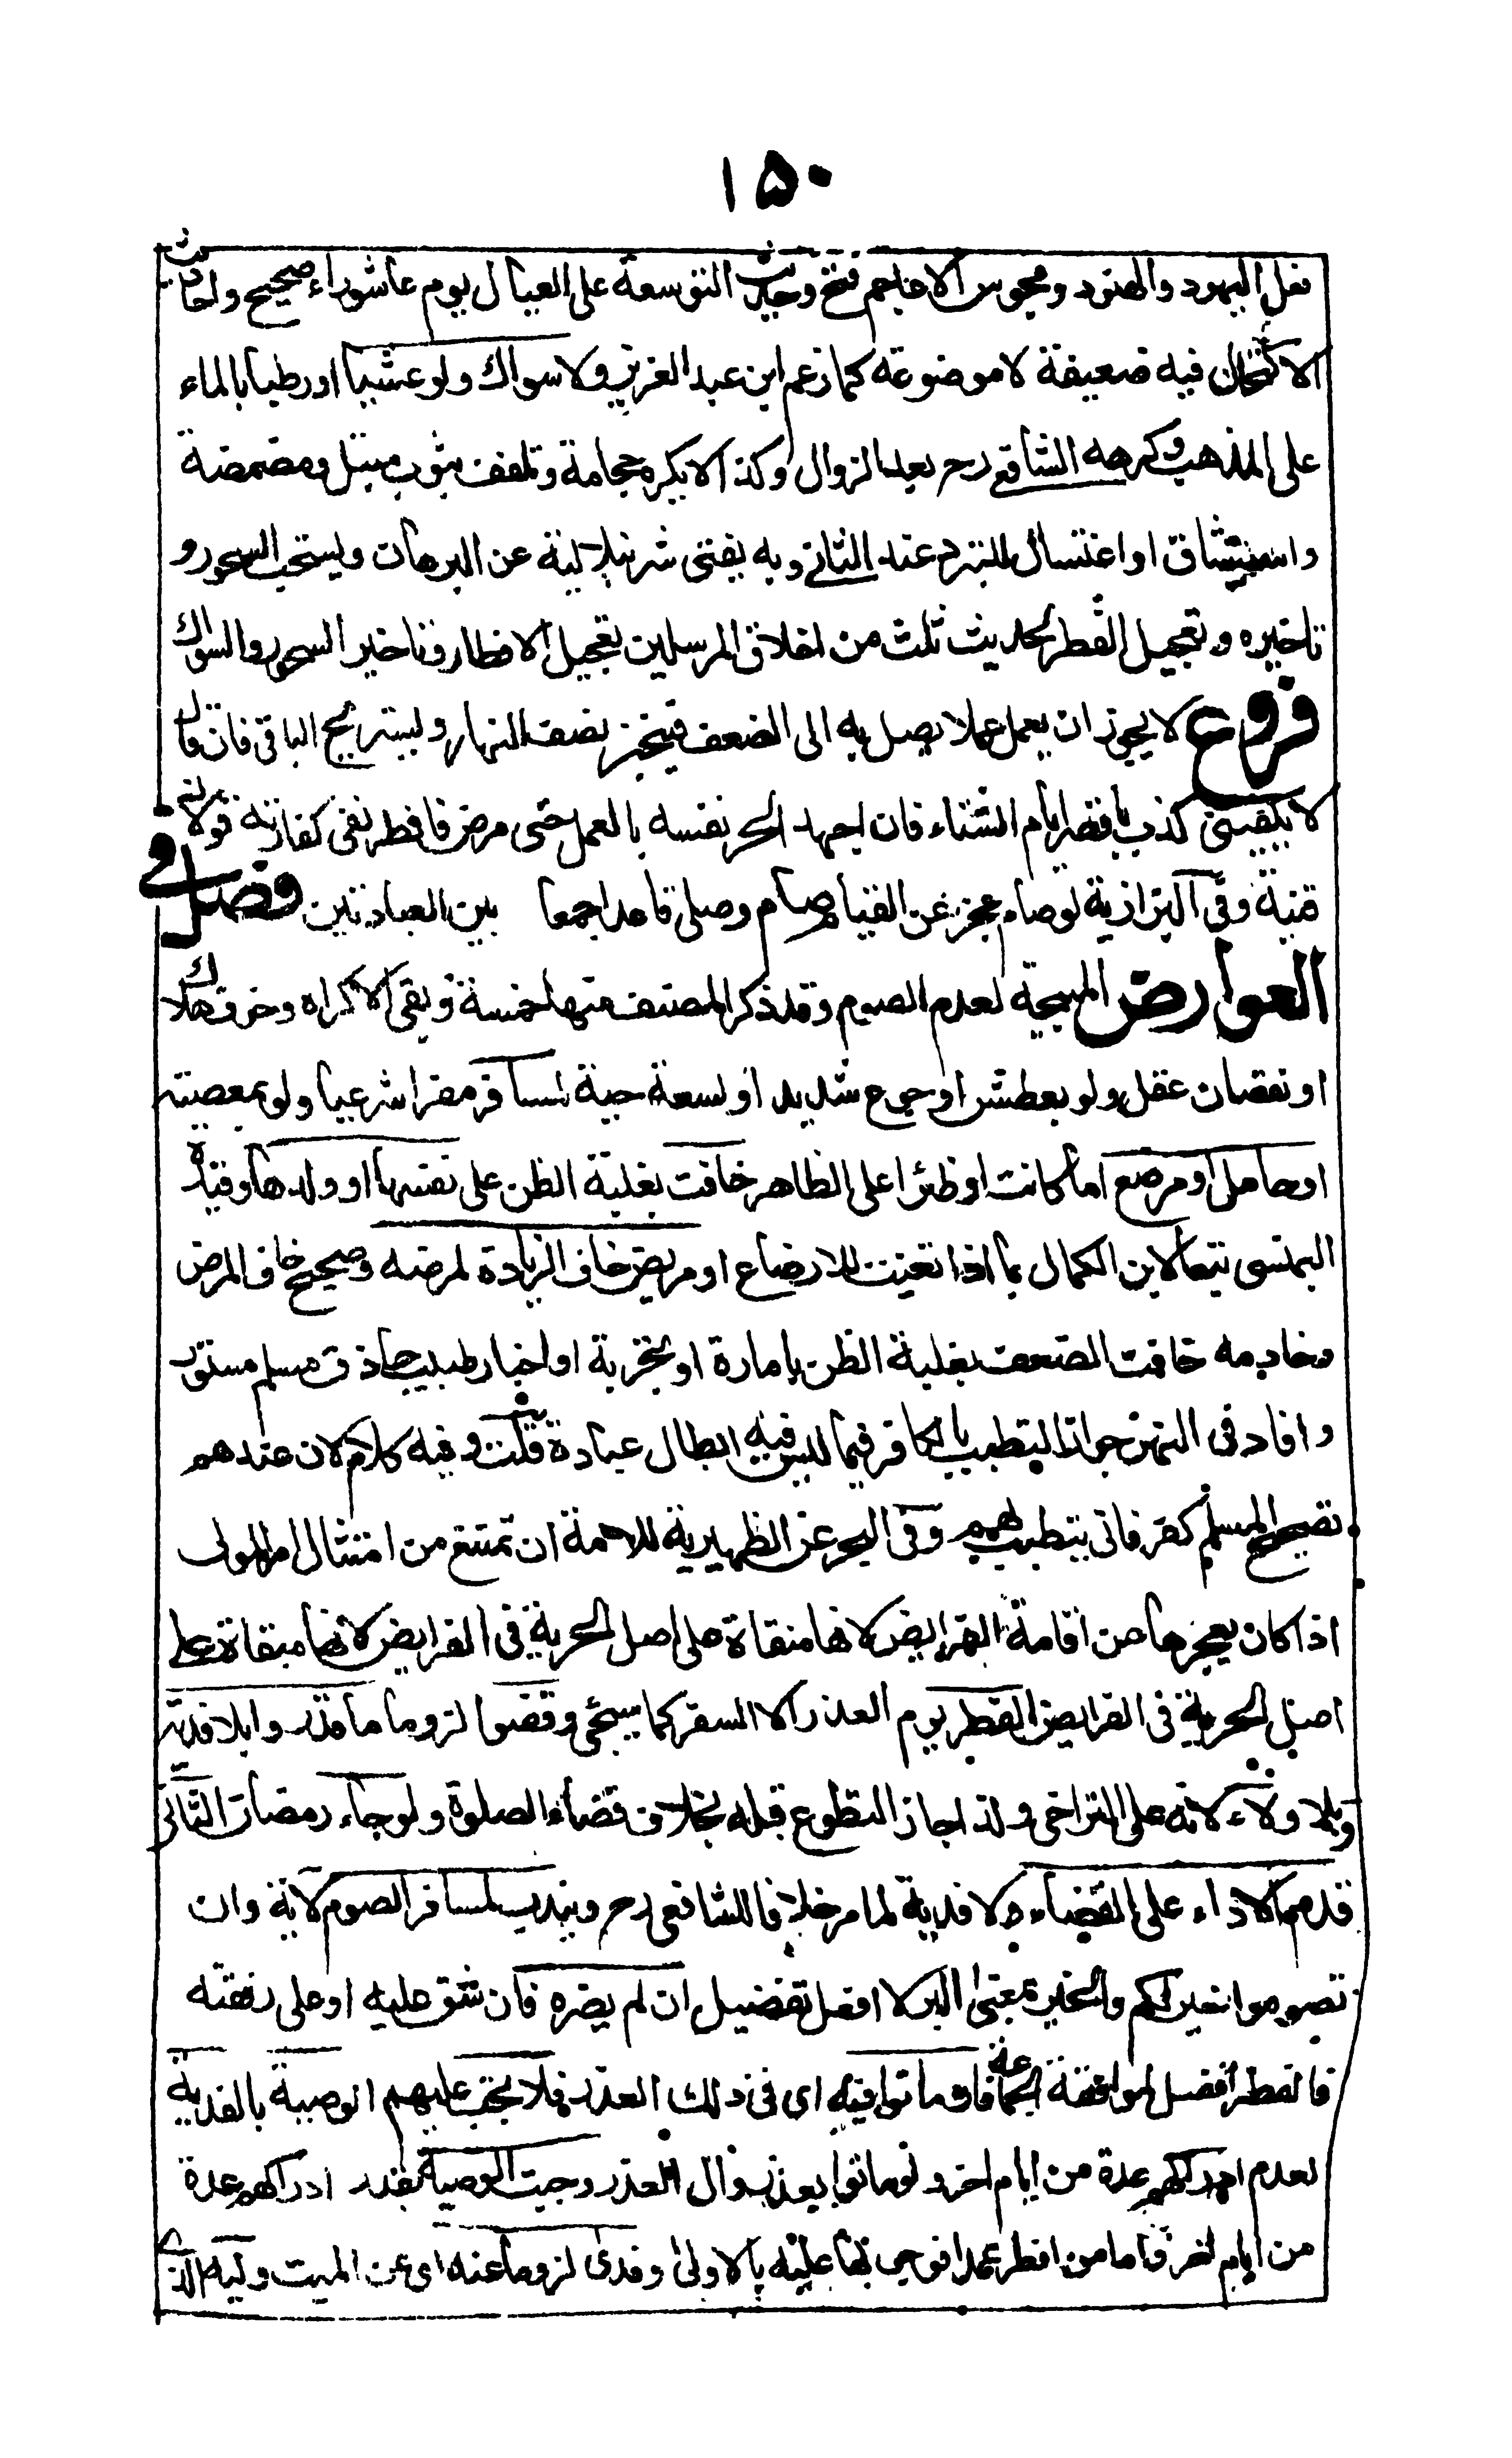 ١٥٠
فعل اليهود والهنود ومجوس الاعاجم فتح وحديث التوسعة على العيال يوم عاشوراء صحيح واحاديث
الاكتحال فيه ضعيفة لا موضوعة كما زعم ابن عبد العزيز ولا سواك ولو عشيا او رطبا بالماء
على المذهب وكرهه الشافعي رح بعد الزوال وكذا لا يكره حجامة وتلفف بثوب مبتل ومضمضة
واستنشاق او اغتسال للتبرد عند الثاني وبه يفتى شرنبلالية عن البرهان ويستحب السحور و
تاخيره وتعجيل الفطر لحديث ثلث من اخلاق المرسلين تعجيل الافطار وتاخير السحور والسواك
فروع لا يجوز ان يعمل عملا يصل به الى الضعف فيخبز نصف النهار ويستريح الباقى فان قال
لا يكفينى كذب باقصر ايام الشتاء فان اجهد الحر نفسه بالعمل حتى مرض فافطر ففى كفارته قولان
قنية وفى البزازية لو صام عجز عن القيام صام وصلى قاعدا جمعا بين العبادتين فصل فى
العوارض المبيحة لعدم الصوم وقد ذكر المصنف منها خمسة وبقى الاكراه وخوف هلاك
او نقصان عقل ولو بعطش او جوع شديد او لسعة حية لمسافر سفرا شرعيا ولو بمعصية
او حامل او مرضع اما كانت او ظئرا على الظاهر خافت بغلبة الظن على نفسها او ولدها وقيده
البهنسى تبعا لابن الكمال بما اذا تعينت للارضاع او مريض خاف الزيادة لمرضه وصحيح خاف المرض
وخادمه خافت الضعف بغلبة الظن بامارة او تجربة او اخبار طبيب حاذق مسلم مستور
وافاد فى النهر جواز التطبيب بالكافر فيما ليس فيه ابطال عبادة قلت وفيه كلام لان عندهم
نصح المسلم كفر فانى يتطبب بهم وفى البحر عن الظهيرية للامة ان تمتنع من امتثال امر المولى
اذا كان يعجزها عن اقامة الفرايض لانها مبقاة على اصل الحرية فى الفرايض لانها مبقاة على
اصل الحرية فى الفرايض الفطر يوم العذر الا السفر كما سيجئ وقضوا لزوما ما قدروا بلا فدية
وبلا ولاء لانه على التراخى ولذا جاز التطوع قبله بخلاف قضاء الصلوة ولو جاء رمضان الثانى
قدم الاداء على القضاء ولا فدية لما مر خلافا للشافعى رح ويندب لمسافر الصوم لاية وان
تصوموا خير لكم والخير بمعنى البر لا افعل تفضيل ان لم يضره فان شق عليه او على رفقته
فالفطر افضل لموافقة الجماعة فان ماتوا فيه اى فى ذلك العذر فلا تجب عليهم الوصية بالفدية
لعدم ادراكهم عدة من ايام اخر ولو ماتوا بعد زوال العذر وجبت الوصية بقدر ادراكهم عدة
من ايام اخر واما من افطر عمدا فوجوبها عليه بالاولى وفدى لزوما عنه اى عن الميت وليه الذى